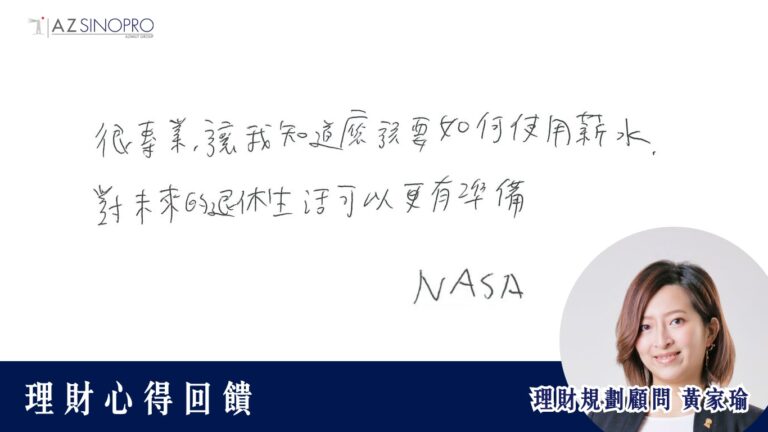 AZ SINOPRO
AZIMUT GROUP
很專業,讓我知道應該要如何使用薪水.
對未來的退休生活可以更有準備
NASA
理財心得回饋
理財規劃顧問 黃家瑜